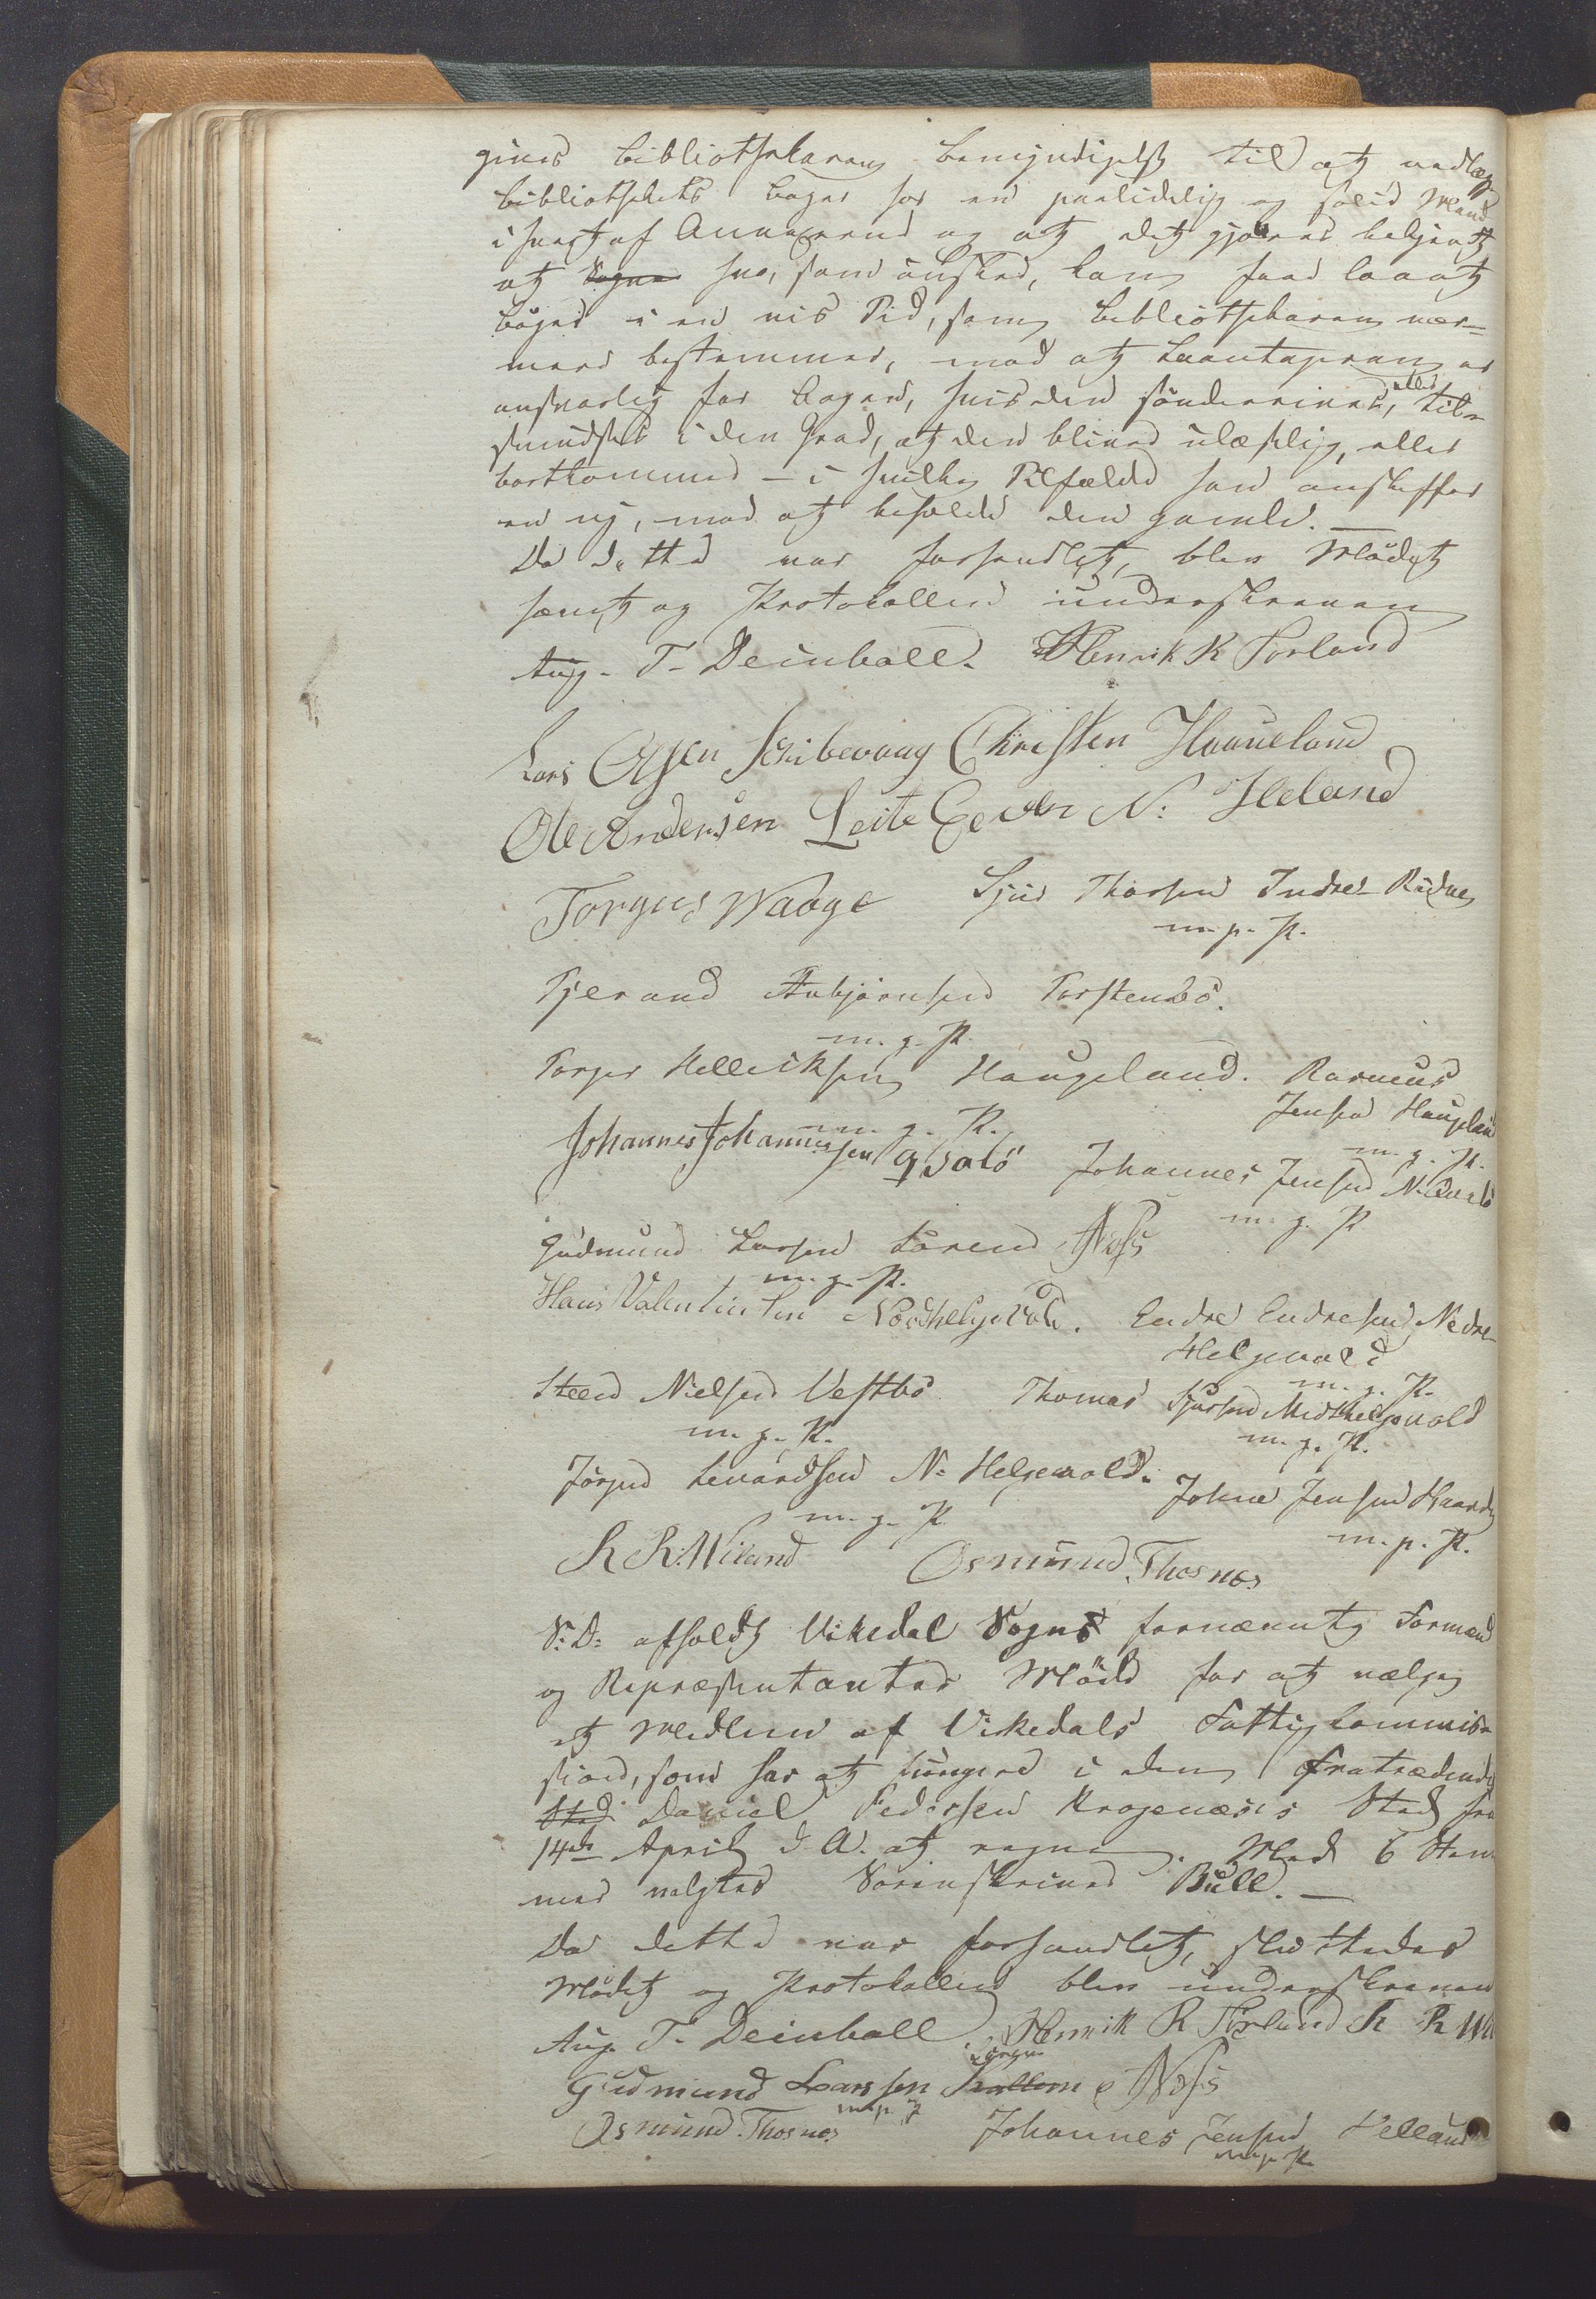 gives Bibliothekaren Bemyndigelse til at nedlægge
Bibliothekets Bøger hos en paalidelig og solid Mand
i hvert af Annexerne og at det gjøres bekjendt
at Enhver, som ønsker, kan faae laant
Bøger i en vis Tid, som Bibliothekaren nær-
mere bestemmer, mod at Laantageren er
ansvarlig for Bogen, hvis den sønderrives, eller til-
smudses i den Grad, at den bliver ulæselig, eller
bortkommer – i hvilke Tilfælde han anskaffer
en ny, mod at beholde den gamle. –
Da dette var forhandlet, blev Mødet
hævet og Protokollen underskreven
Aug. T. Deinboll. Henrik R Sørland
Lars Olsen Skibevaag Christen Haaveland
Ole Andersen Leite N: Heland
Torgeis Waage Thorsen Indre
m. p. P.
Tjerand Torstenbø.
m. p. P.
Torger Helliksen Haugeland. Rasmus
Jensen Haugeland
m. p. P.
Johannes Johannessen m. p. P.
Johannes Jensen
m. p. P.
Gudmund Larsen N
m. p. P.
Hans Valentinsen Nordhelgevold. Endre Endresen Nedre
Helgevold
m. p. P.
Steen Nielsen Vestbø Thomas Midthelgevold
m. p. P. m. p. P.
Jørgen N. Helgevold. Johne Jensen
m. p. P. m. p. P.
R R: Wiland Osmund Thosnes
S: D: afholdt Vikedal Sogns fornævnte Formænd
og Repræsentanter Møde for at vælge
et Medlem af Vikedals Fattigkommis-
sion, som har at fungere i den fratrædende
Sted Daniel Pedersen Krogenæses Sted fra
14de April d. A. at regne. Med 6 Stem-
mer valgtes Sorenskriver Bull. –
Da dette var forhandlet, sluttedes
Mødet og Protokollen blev underskreven
Aug. T. Deinboll Henrik R Sørland R R Wil
Gudmund Larssen N
m. p. P.
Osmund Thosnes Johannes Jensen Helland
m. p. P.